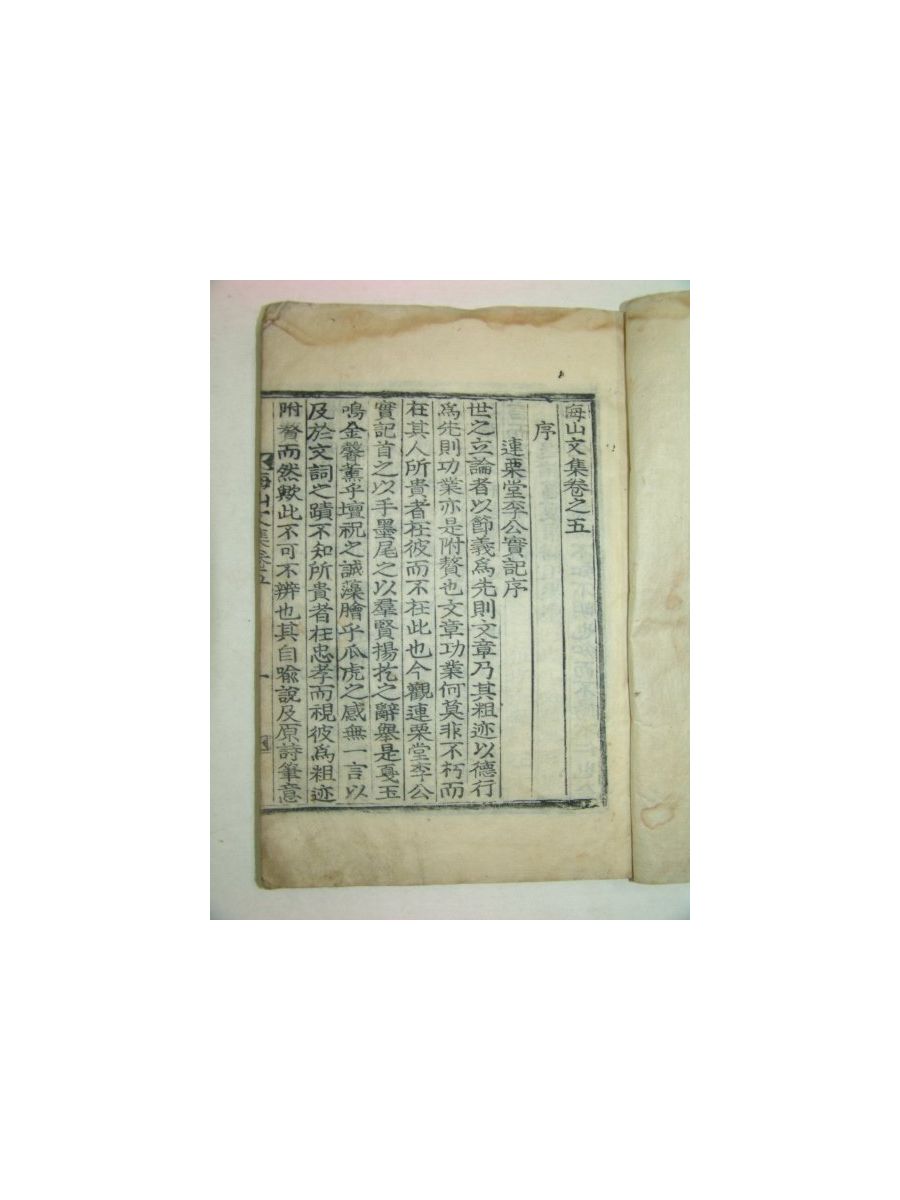 海山文集卷之五
序
連栗堂李公實記序
世之立論者以節義爲先則文章乃其粗迹以德行
爲先則功業亦是附贅也文章功業何莫非不朽而
在其人所貴者在彼而不在此也今觀連栗堂李公
實記首之以手墨尾之以羣賢揚扢之辭擧是戛玉
鳴金馨薰乎壇祝之誠藻膾乎瓜虎之感無一言以
及於文詞之蹟不知所貴者在忠孝而視彼爲粗迹
附贅而然歟此不可不辨也其自喩說及原詩筆意
海山文集卷五
一